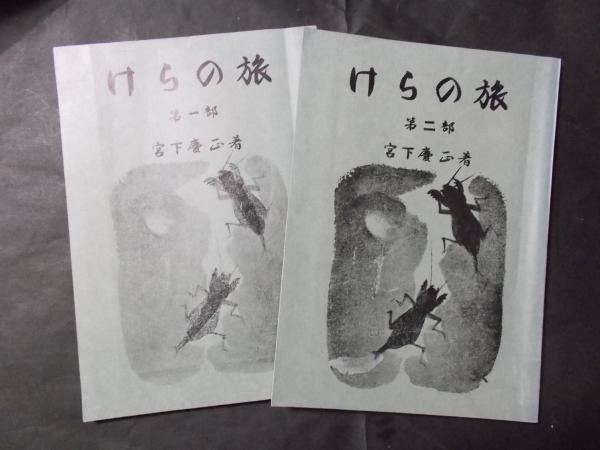 けらの旅
第一部
宮下慶正著
けらの旅
第二部
宮下慶正著